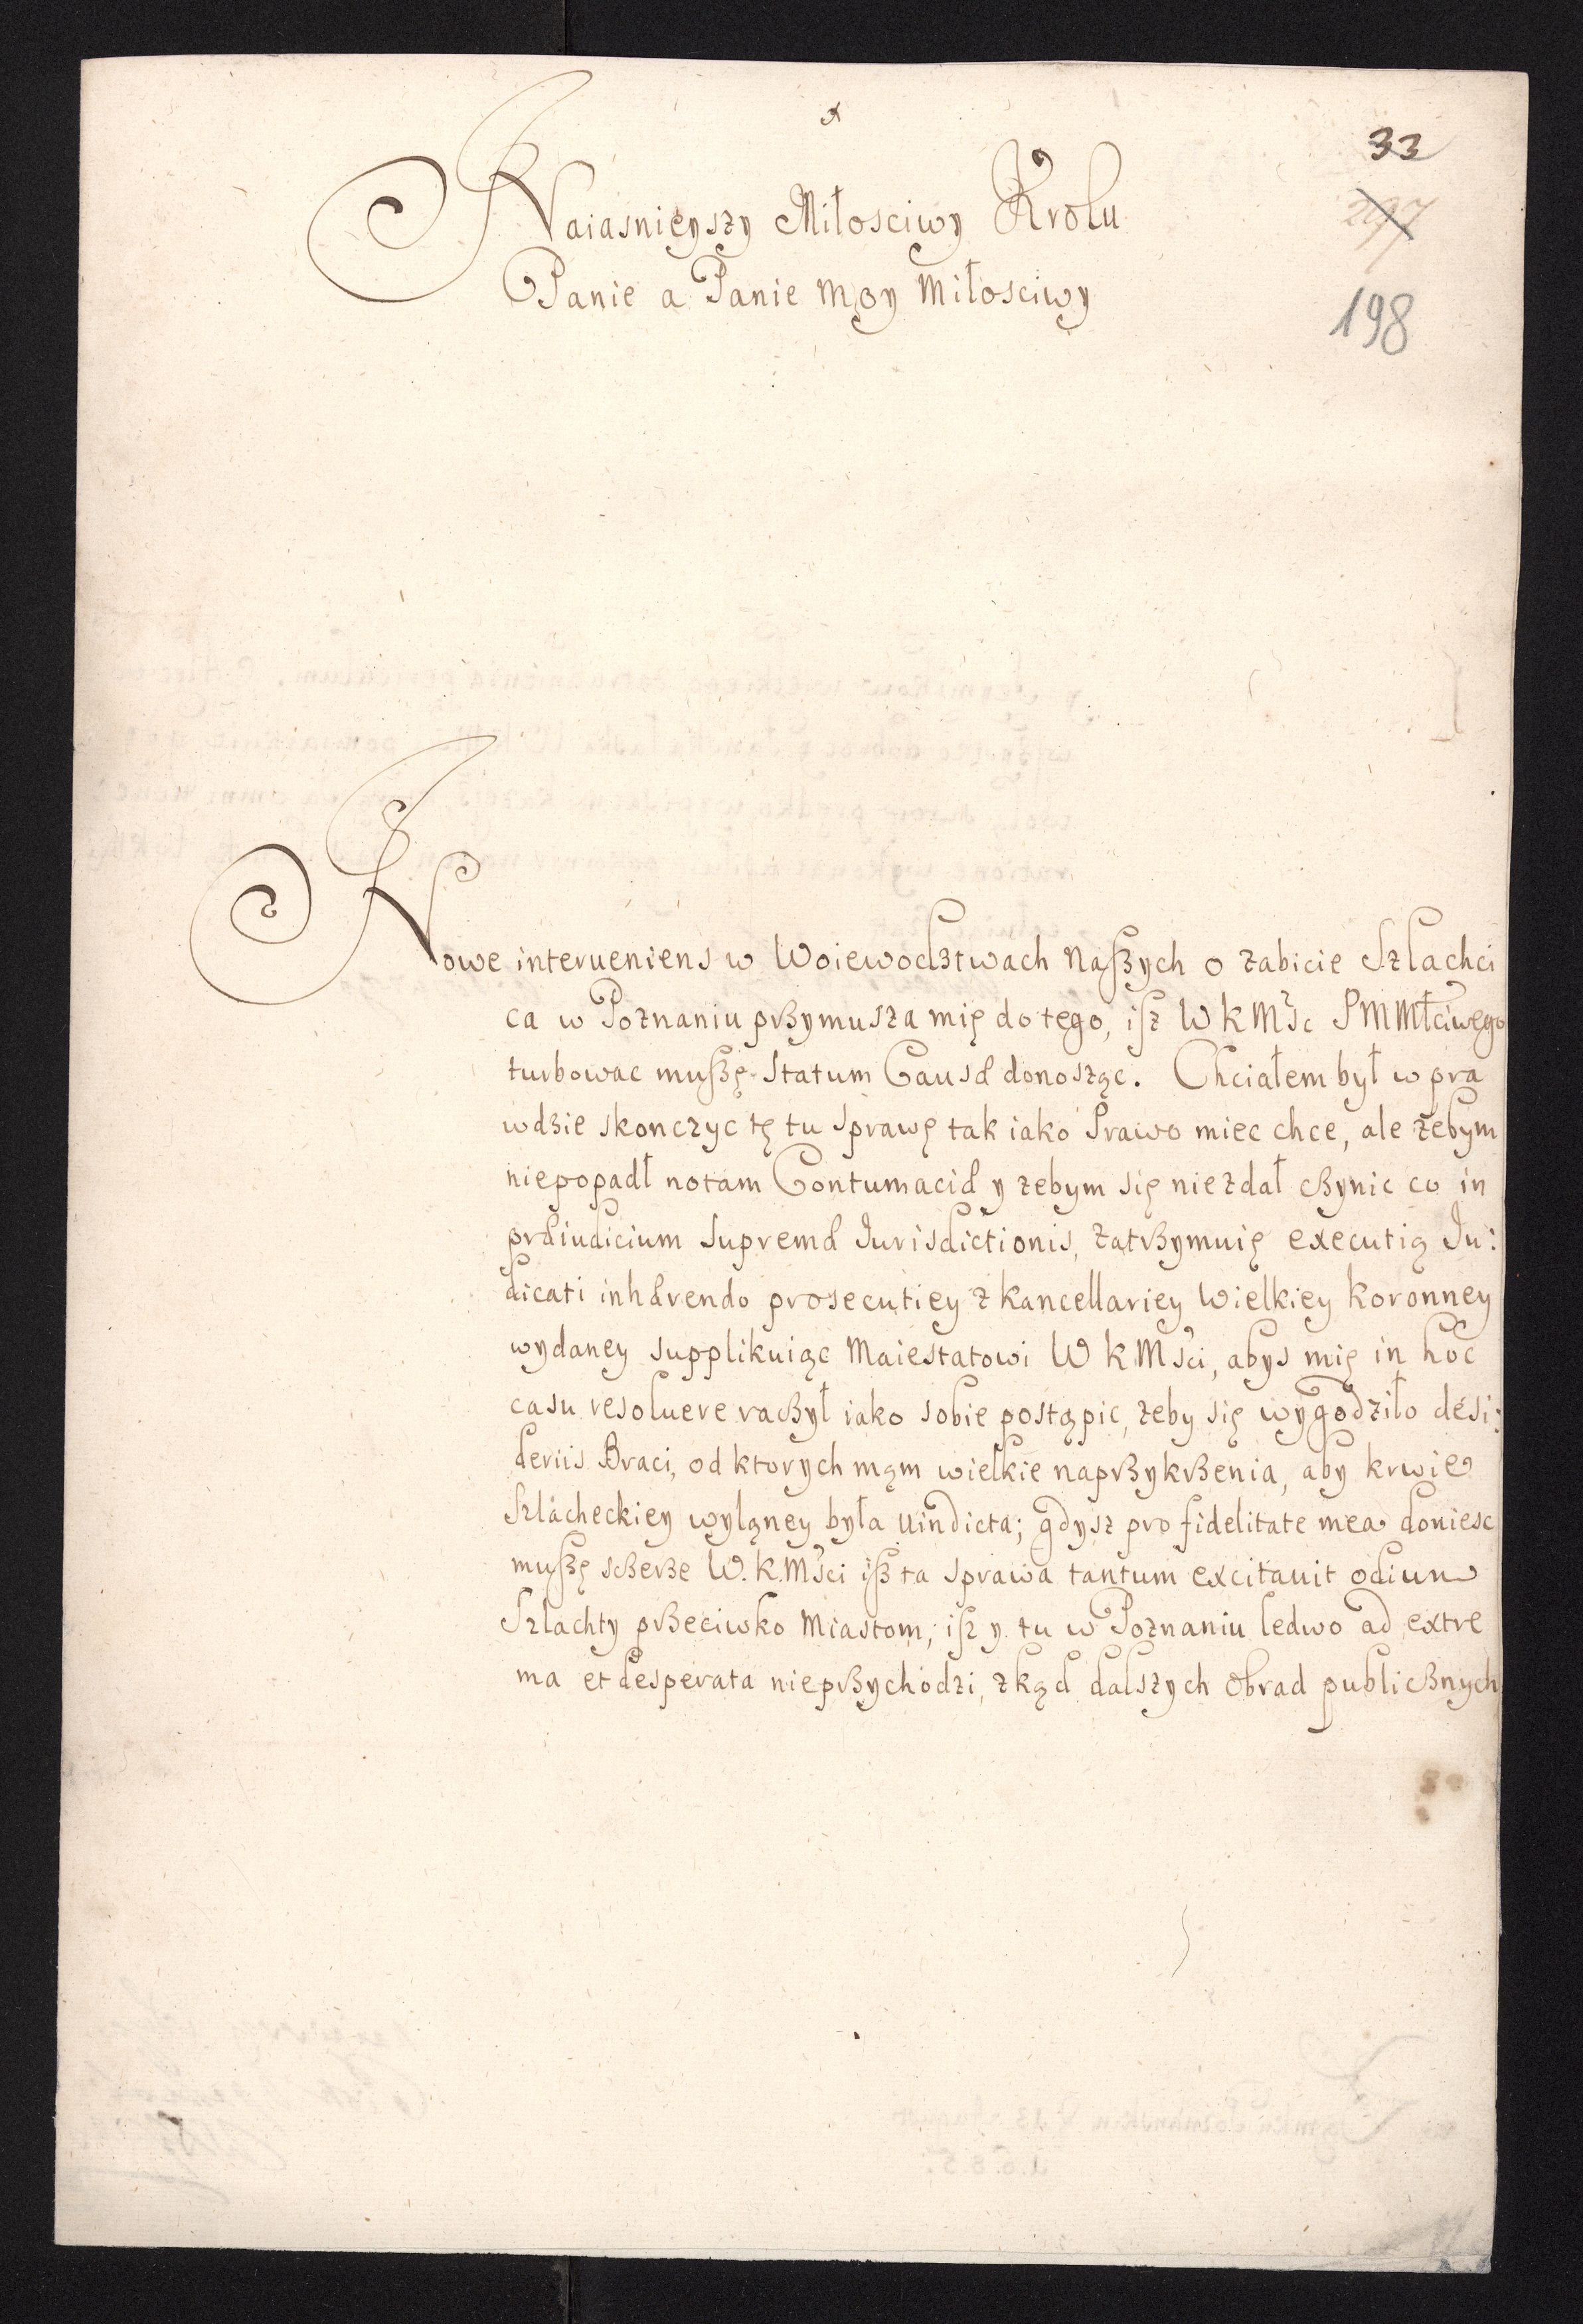 33
297
198
Naiasnieyszy Miłosciwy Krolu
Panie a Panie Moy Miłosciwy
Nowe interueniens w Woiewodztwach Naszych o zabicie Szlachci
ca w Poznaniu przymusza mię do tego, isz W K Msc P M Młciwego
turbowac muszę statum Causæ donosząc. Chciałem był w pra
wdzie skonczyc tę tu sprawę tak iako Prawo miec chce, ale zebym
niepopadł notam Contumaciæ y zebym się niezdał czynic co in
præiudicium supremæ Jurisdictionis, zatrzymuię executią Ju:
dicati inhærendo prosecutiey z kancellariey Wielkiey koronney
wydaney supplikuiąc Maiestatowi W K Msci, abys mię in hoc
casu resoluere raczył iako sobie postąpic, zeby się wygodziło desi:
deriis Braci, od ktorych mąm wielkie naprzykrzenia, aby krwie
Szlacheckiey wyląney była uindicta; gdysz pro fidelitate mea doniesc
muszę sczerze W. K. Msci isz ta sprawa tantum excitauit odium
Szlachty przeciwko Miastom, isz y tu w Poznaniu ledwo ad extre
ma et desperata nieprzychodzi, zkąd dalszych obrad publicznych